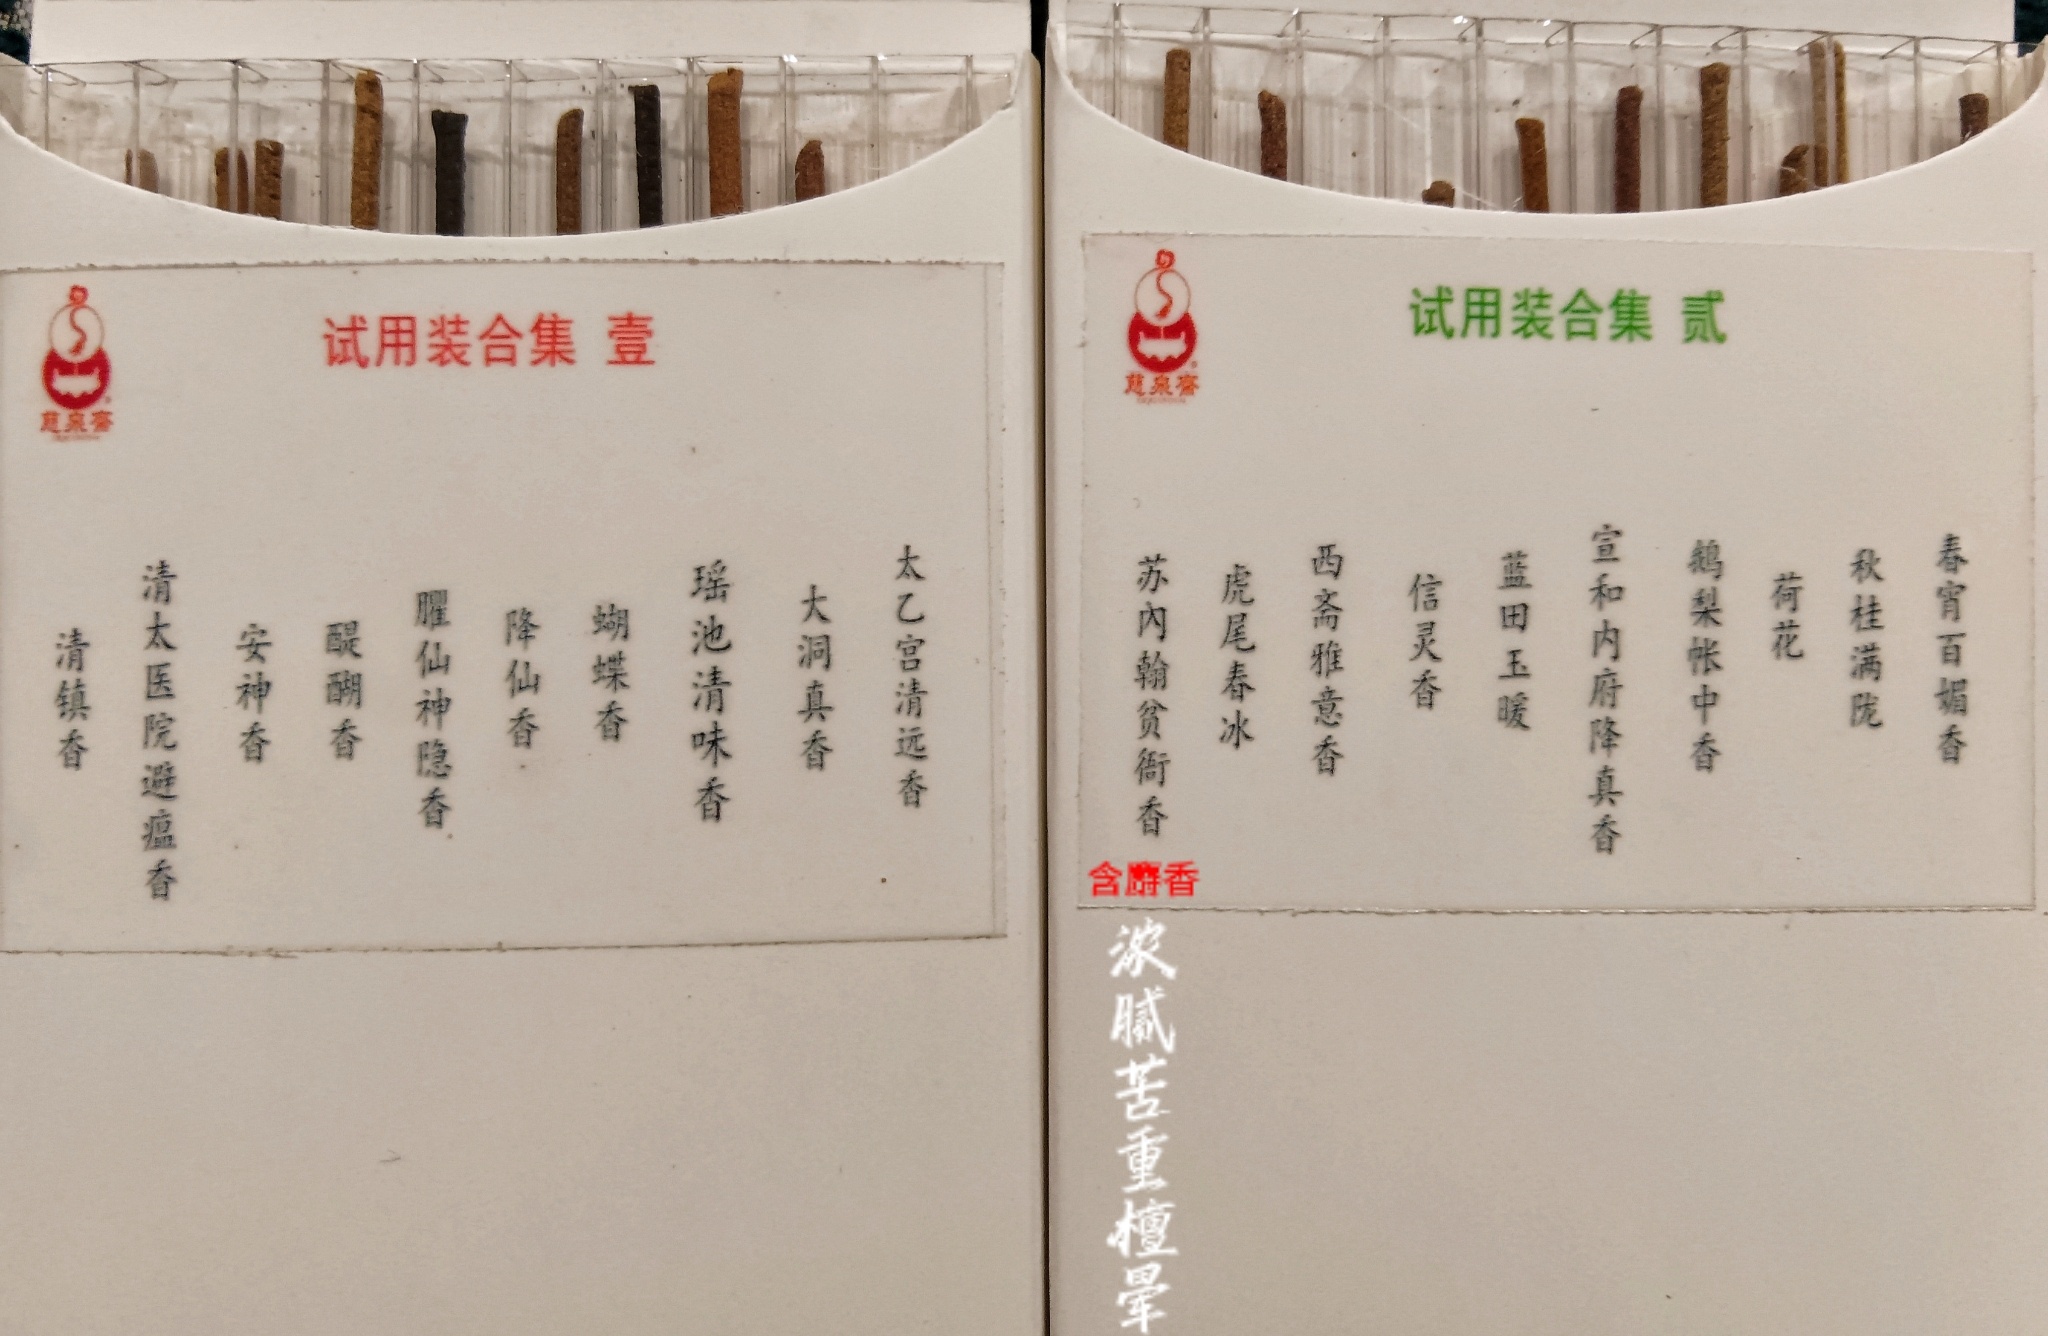 慈泉斋
试用装合集 壹
清镇香
清太医院避瘟香
安神香
醍醐香
臞仙神隐香
降仙香
蝴蝶香
瑶池清味香
大洞真香
太乙宫清远香
慈泉斋
试用装合集 贰
苏内翰贫衙香
含麝香
浓腻苦重檀晕
虎尾春冰
西斋雅意香
信灵香
蓝田玉暖
宣和内府降真香
鹅梨帐中香
荷花
秋桂满陇
春宵百媚香